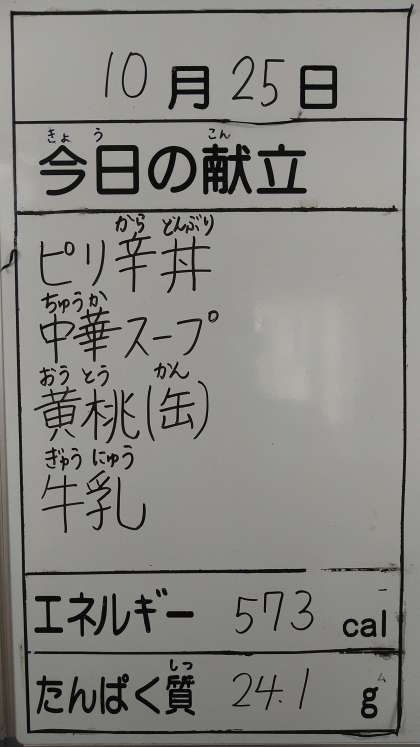 10月25日
きょう こん
今日の献立
から どんぶり
ピリ辛丼
ちゅうか
中華スープ
おうとう かん
黄桃(缶)
ぎゅうにゅう
牛乳
エネルギー 573 cal
しつ
たんぱく質 24.1 g